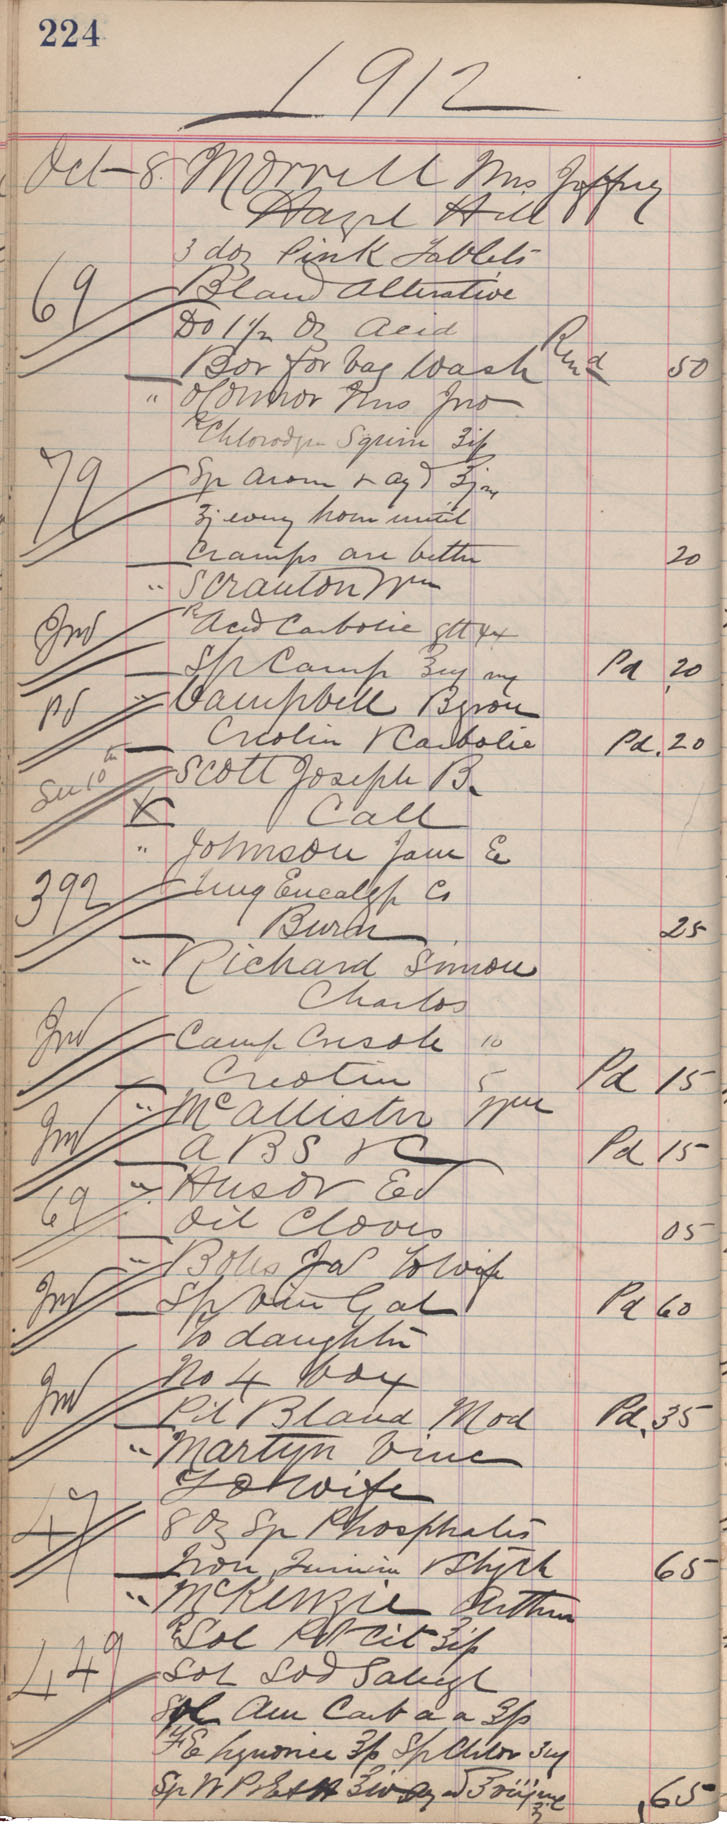 224
1912
Oct 8. Morrell Mrs Jeffrey
Hazel Hill
3 doz Pink Tablets
69 Bland Alterative
Do 1 1/2 Oz Acid
Bor for Vag Wash Rend 50
" O'Connor Mrs Jno
Rx Chlorodyne Squire ʒij
79 Sp Arom & aq ad
ʒj every hour until
Cramps are better 20
" Scranton Wm
Jnd Rx Acid Carbolic gtt
Sp Camp Pd 20
Pd " Campbell Byron
Creolin & Carbolic Pd. 20
See 10th Scott Joseph B.
Call
" Johnson Jam E
392 Ung Eucalyp Co
Burn 25
" Richard Simon
Charlos
Jnd Camp Cresole 10
Creolin 5 Pd 15
Jnd " McAllister Wm
A B S & C Pd 15
69 " Husor Ed
Oil Cloves 05
" Boles Jas to wife
Jnd Sp Vini Gal Pd 60
to daughter
Jnd No 4 box
Pil Blaud Mod Pd. 35
" Martyn Vinc
To wife
47 8 Oz Sp Phosphates
Iron & Stych 65
" McKenzie Arthur
Rx Sol Pot Cit ʒij
449 Sol Sod Salicyl
Sol Am Carb a a
Sp Chlor
Sp 65